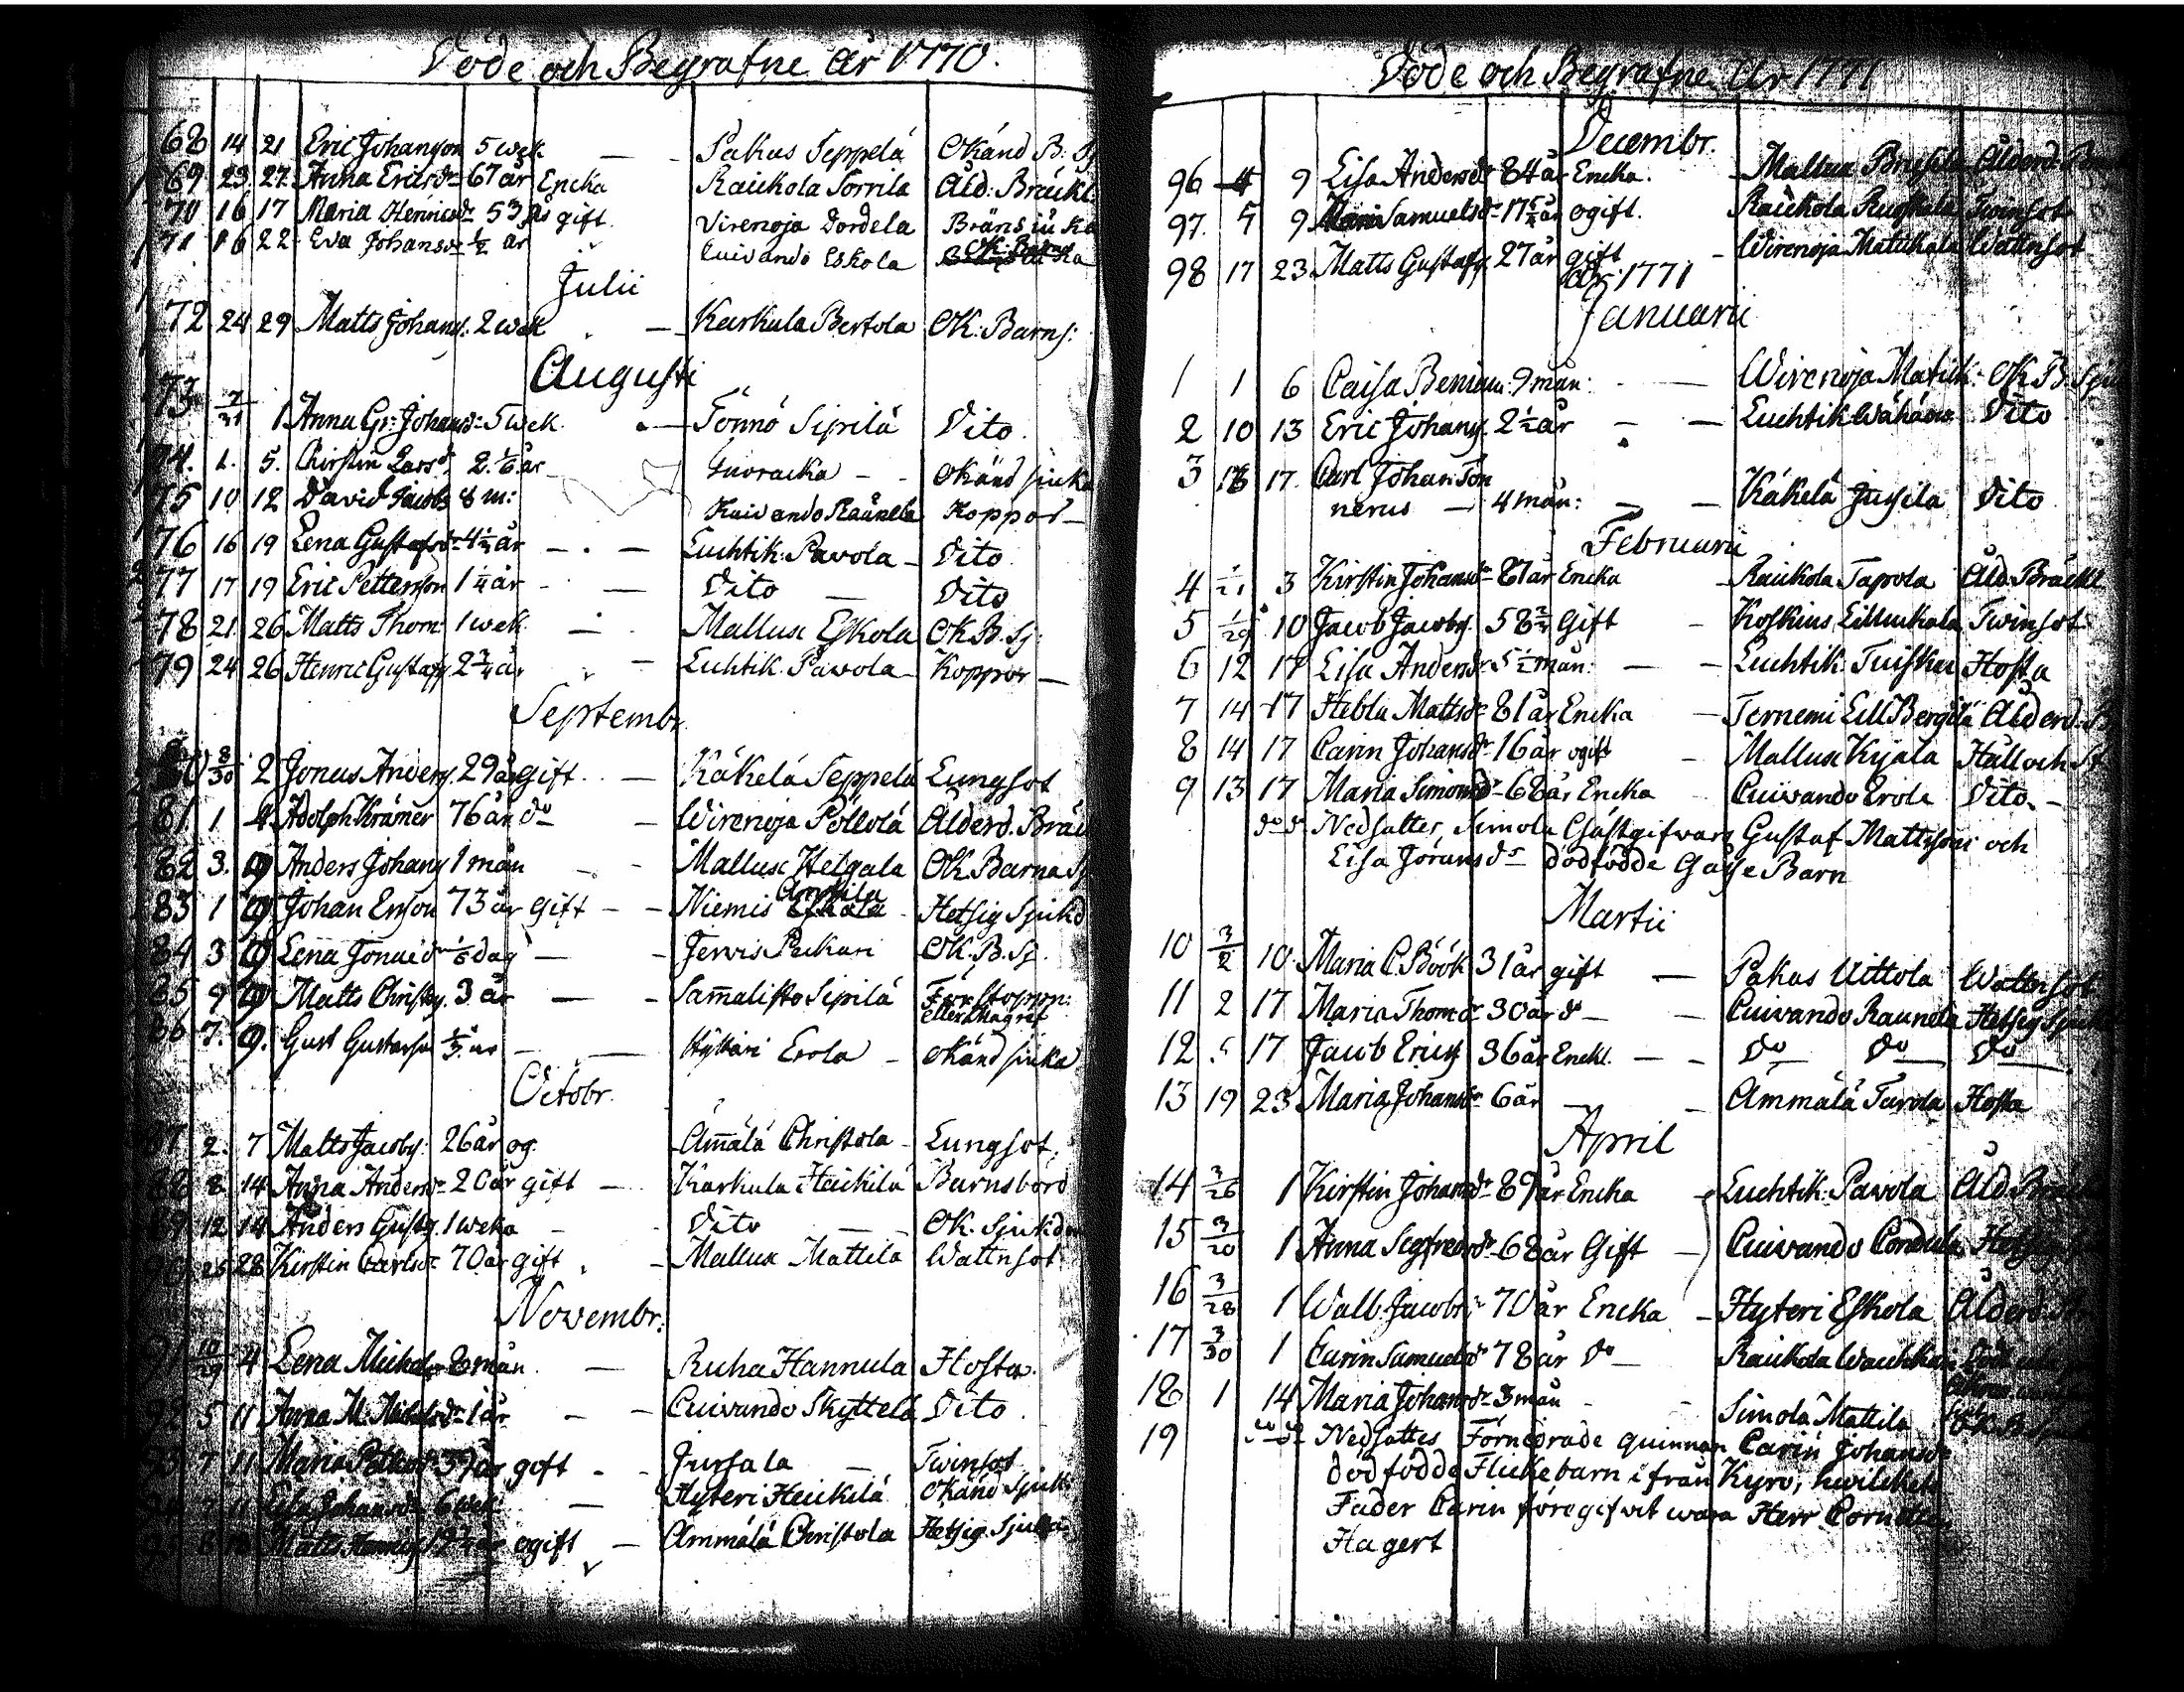 Döde och Begrafne År 1770.
68 14 21 Eric Johanson 5 wek — Pakus Seppelä Okänd B. Sj
69 23. 27. Anna Ericsdr 67 år Encka Raickola Sorrila Åld: Bräckl:
70 16 17 Maria Henricsdr 53 år gift. Virenoja Dordela Bräns
71 16 22 Eva Johansdr 1/2 år Cuivando Eskola
Julii
72 24 29 Matts Johans. 2 wek — Karkula Bertola OK: Barns:
Augusti
73 7/31 1 Anna Gr: Johansdr 5 wek. — Tönnö Siprilä Dito.
74. 1. 5. Chirstin Larsd. 2 1/6 år Okänd siuka
75 10 12 David Jacobs 8 m: Kuivando Raunela Koppor —
76 16 19 Lena Gustafsdr 4 1/2 år — . — Luhtik: Pavola — Dito
77 17 19 Eric Pettersson 1 1/4 år — — Dito — Dito
78 21. 26 Matts Thom 1 wek. — Mallux Eskola OK. B. Sj:
79 24 26 Henric Gustafs 2 3/4 år — Luhtik. Pavola — Koppor —
Septembr.
80 8/30 2 Jonas Anders. 29 år gift. — Käkelä Seppelä Lungsot
81 1 4 Adolph Krämer 76 år do — Wirenoja Pöllölä Ålderd. Bräck
82 3. 9 Anders Johans 1 mån — Mallux Helgala OK Barna Sj
83 1 9 Johan Erson 73 år gift — — Niemis Anttila Hetsig Sjukd
84 3 9 Lena Jonaed 1/6 dag — Jervis Peckari OK. B. Sj.
85 9 9 Matts Christ. 3 år — — Sam̄alisto Sipilä Förstoppn:
eller Magref
86 7. 9. Gust Gustafson 1/3 år — — Hyteri Erola — okänd siuka
Octobr.
87 2. 7 Matts Jacobs: 26 år og. Am̄älä Christola — Lungsot.
88 8 14 Anna Andersdr 20 år gift — Karkula Heickilä Barnsbörd
89 12 14 Anders Gusts. 1 weka — Dito — OK. Sjukdom
90 25 28 Kirstin Carlsdr 70 år gift — Mallux Mattila Wattnsot
Novembr.
91 10/29 4 Lena Michelsdr 8 mån. — Ruha Hannula Hosta.
92 5 11 Anna M: Michelsdr 1 år — — Cuivando Skyttelä Dito
93 7 11 Maria 37 år gift — Jursala — Twinsot
94 7 11 Johansdr 6 wek — Hyteri Heickilä Okänd Sjukd
95 8 18 Matts Henrics 19 1/2 år ogift — Ammälä Christola Hetsig. Sjukd
Döde och Begrafne År 1771
Decembr.
96 4 9 Lisa Andersdr 84 år Encka. Mallux Ålderd.
97. 5 9 Maria Samuelsdr 17 år ogift. Raickola Ruoskala Twinsot
98 17 23 Matts Gustafs. 27 år gift — Wirenoja Matickala Wattnsot
År 1771
Januarii
1 1 6 Caisa Beniam: 9 mån: — Wirenoja Matick: OK. B. Sju
2 10 13 Eric Johans. 2 1/2 år — — Luchtik Dito
3 18 17. Carl Johan Tor
nerus — 4 mån: — — Käkelä Jusila Dito
Februarii
4 1/21 3 Kirstin Johansdr 87 år Encka — Raickola Tapola Åld. Bräckl
5 1/29 10 Jacob Jacobs. 58 3/4 Gift — Koskius Lillunkala Twinsot
6 12 17 Lisa Andersdr 5 1/2 mån: — — Luchtik. Tuisku Hosta
7 14 17 Hebla Mattsdr 81 år Encka — Ternemi Lill Bergilä Ålderd. B
8 14 17 Carin Johansdr 16 år ogift — Mallux Kyala Håll och St
9 13 17 Maria Simonsdr 68 år Encka Cuivando Erola Dito. —
do do Nedsattes, Simola Gästgifvars Gustaf Mattssons och
Lisa Jöransdr dödfödde Gåsse Barn
Martii
10 3/2 10. Maria C. Böök 31 år gift — Pakas Uittola Wattnsot
11 2 17 Maria Thomdr 30 år do — — Cuivando Raunela Hetsig Sjukd
12 5 17 Jacob Erics 36 år Enckl. — — Do Do Do
13 19 23 Maria Johansdr 6 år — — Ammälä Tavola Hosta
April
14 3/26 1 Kirstin Johansdr 89 år Encka — Luchtik: Pavola Åld.
15 3/20 1 Anna Segfredsdr 68 år Gift — Cuivando Cordula Hetsig
16 3/28 1 Walb. Jacobsdr 70 år Encka — Hyteri Eskola Ålderd.
17 3/30 1 Carin Samuelsdr 78 år Do — Raickola
18 1 14 Maria Johansdr 3 mån — Simola Mattila OK. B.
19 do do Nedsattes Förnedrade quinnan Carin Johansdr
dödfödde Flickebarn ifrån Kyro, hwilckets
Fader Carin föregifvit wara Herr Cornetten
Hagert